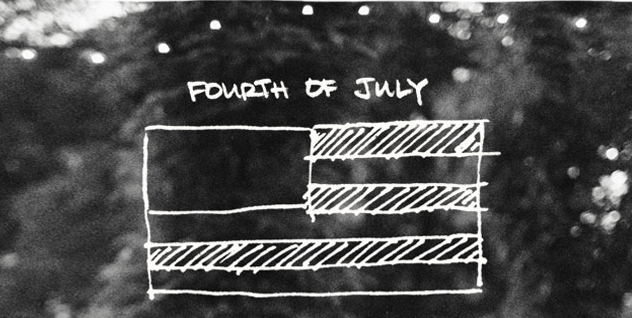 FOURTH OF JULY